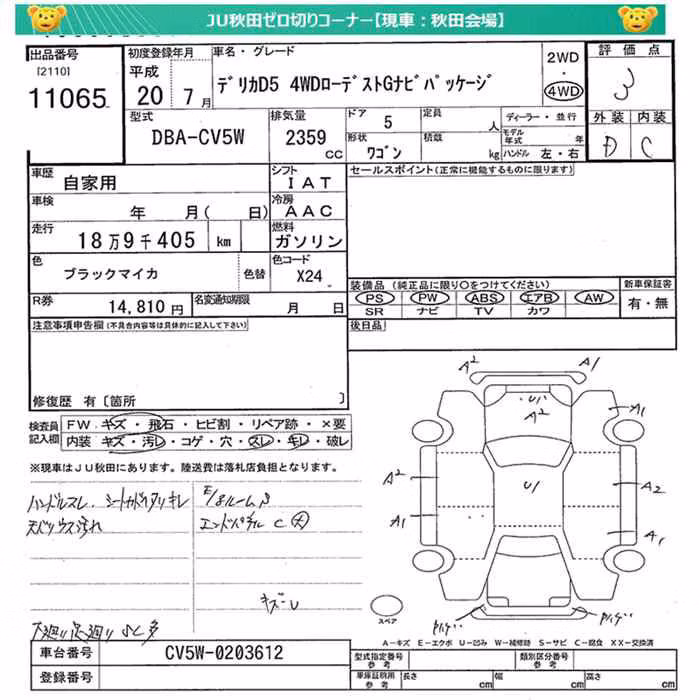 JU秋田ゼロ切りコーナー【現車：秋田会場】
出品番号
[2110]
11065
初度登録年月
平成
20 7月
車名・グレード
デリカD5 4WDローデストGナビパッケージ
2WD
・
4WD
評価点
3
型式
DBA-CV5W
排気量
2359
CC
ドア
5
定員
人
形状
ワゴン
積載
kg
ディーラー・並行
モデル年式 年
ハンドル 左・右
外装 内装
D C
車歴
自家用
シフト
IAT
車検
年 月( 日)
冷房
AAC
走行
18万9千405 km
燃料
ガソリン
色
ブラックマイカ
色替
色コード
X24
R券
14,810円
名変通知期限
月 日
セールスポイント(正常に機能するものに限ります)
装備品 (純正品に限り〇をつけてください)
PS PW ABS エアB AW
SR ナビ TV カワ
新車保証書
有・無
後日品
注意事項申告欄(不具合内容等は具体的に記入して下さい)
修復歴 有〔箇所 〕
検査員記入欄
FW キズ・飛石・ヒビ割・リペア跡・×要
内装 キズ・汚レ・コゲ・穴・スレ・キレ・破レ
※現車はJU秋田にあります。陸送費は落札店負担となります。
ハンドルスレ
キズ-U
下廻り足廻りSC多
A2 A1
U1
A2
A1
A2
U1
A2
A1
A1
スペア
A-キズ E-エクボ U-凹み W-補修跡 S-サビ C-腐食 XX-交換済
車台番号
CV5W-0203612
登録番号
型式指定番号
参考
類別区分番号
参考
車庫証明用
参考
長さ cm 幅 cm 高さ cm